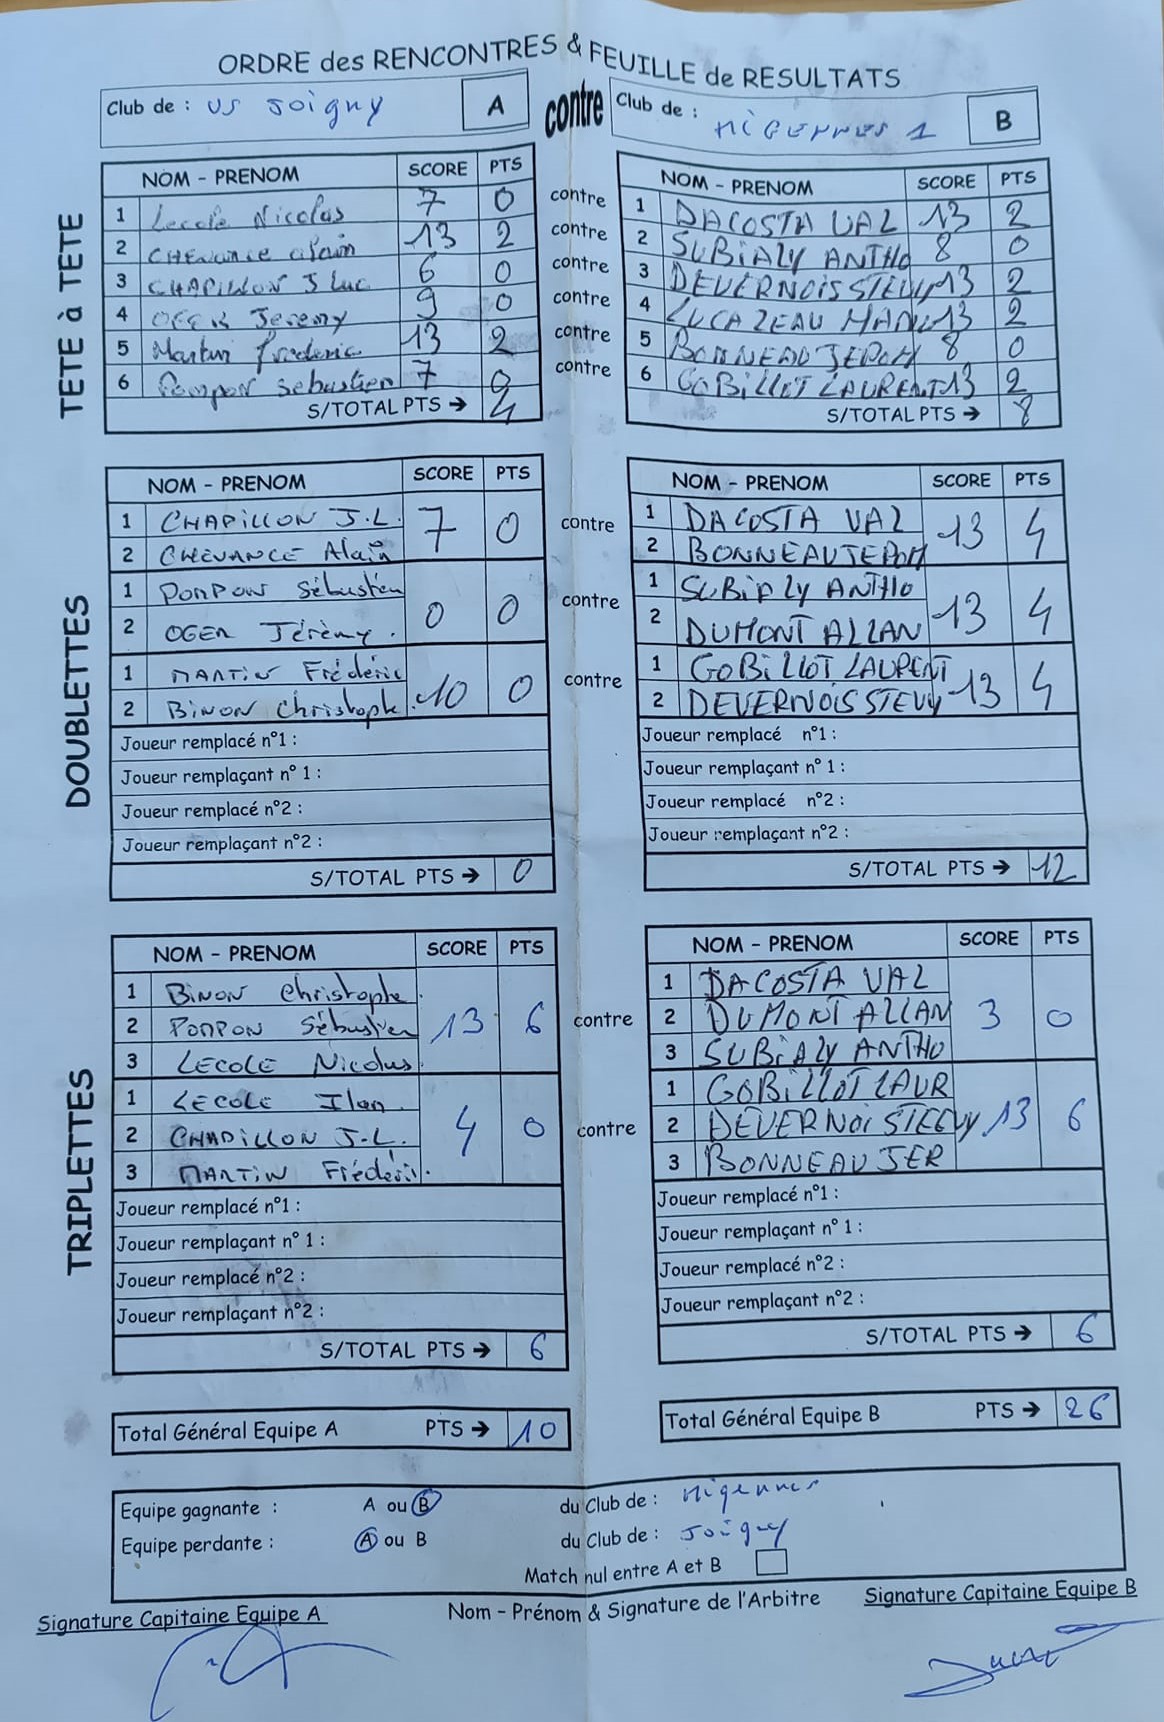 ORDRE des RENCONTRES & FEUILLE de RESULTATS
Club de : US Joigny A contre Club de : MIGENNES 1 B
TETE à TETE
NOM - PRENOM SCORE PTS NOM - PRENOM SCORE PTS
1 Lecole Nicolas 7 0 contre 1 DACOSTA VAL 13 2
2 CHEVANCE Alain 13 2 contre 2 SUBIALY ANTHO 8 0
3 CHAPILLON J Luc 6 0 contre 3 DEVERNOIS STEVY 13 2
4 OGER Jeremy 9 0 contre 4 LUCAZEAU MANU 13 2
5 Martin frederic 13 2 contre 5 BONNEAU JEROM 8 0
6 Pompon sebastien 7 0 contre 6 GOBILLOT LAURENT 13 2
S/TOTAL PTS → 4 S/TOTAL PTS → 8
DOUBLETTES
NOM - PRENOM SCORE PTS NOM - PRENOM SCORE PTS
1 CHAPILLON J.L. 7 0 contre 1 DACOSTA VAL 13 4
2 CHEVANCE Alain 2 BONNEAU JEROM
1 POMPON Sébastien 0 0 contre 1 SUBIALY ANTHO 13 4
2 OGER Jérèmy. 2 DUMONT ALLAN
1 MARTIN Frédéric 10 0 contre 1 GOBILLOT LAURENT 13 4
2 BINON Christophe. 2 DEVERNOIS STEVY
Joueur remplacé n°1 : Joueur remplacé n°1 :
Joueur remplaçant n° 1 : Joueur remplaçant n° 1 :
Joueur remplacé n°2 : Joueur remplacé n°2 :
Joueur remplaçant n°2 : Joueur remplaçant n°2 :
S/TOTAL PTS → 0 S/TOTAL PTS → 12
TRIPLETTES
NOM - PRENOM SCORE PTS NOM - PRENOM SCORE PTS
1 BINON Christophe. 1 DACOSTA VAL
2 POMPON Sébastien 13 6 contre 2 DUMONT ALLAN 3 0
3 LECOLE Nicolas. 3 SUBIALY ANTHO
1 LECOLE Ilan. 1 GOBILLOT LAUR
2 CHAPILLON J.L. 4 0 contre 2 DEVERNOI STEEVY 13 6
3 MARTIN Frédéric. 3 BONNEAU JER
Joueur remplacé n°1 : Joueur remplacé n°1 :
Joueur remplaçant n° 1 : Joueur remplaçant n° 1 :
Joueur remplacé n°2 : Joueur remplacé n°2 :
Joueur remplaçant n°2 : Joueur remplaçant n°2 :
S/TOTAL PTS → 6 S/TOTAL PTS → 6
Total Général Equipe A PTS → 10 Total Général Equipe B PTS → 26
Equipe gagnante : A ou B du Club de : Migennes
Equipe perdante : A ou B du Club de : Joigny
Match nul entre A et B
Signature Capitaine Equipe A Nom - Prénom & Signature de l'Arbitre Signature Capitaine Equipe B